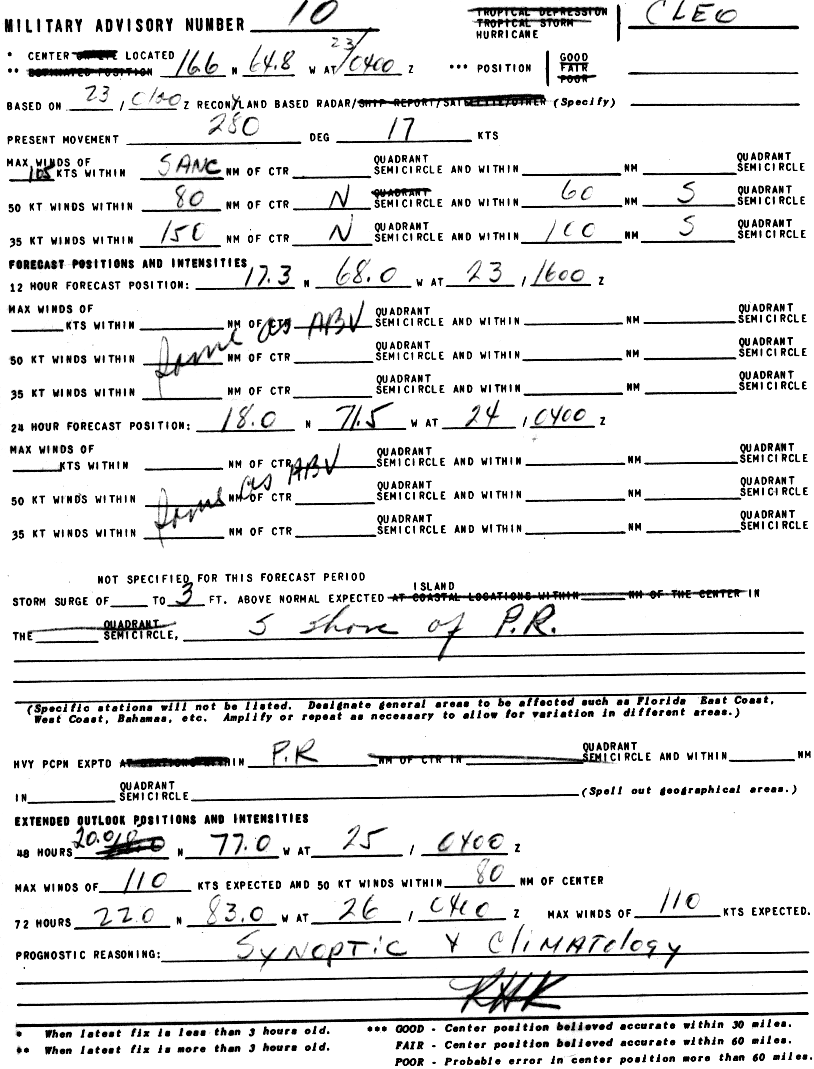 MILITARY ADVISORY NUMBER 10 TROPICAL DEPRESSION CLEO
TROPICAL STORM
HURRICANE
* CENTER LOCATED 16.6 N 64.8 W AT 23/0400 Z *** POSITION GOOD
** ESTIMATED POSITION FAIR
POOR
BASED ON 23 / 0120 Z RECON/LAND BASED RADAR/SHIP REPORT/SATELLITE/OTHER (Specify)
PRESENT MOVEMENT 280 DEG 17 KTS
MAX WINDS OF QUADRANT QUADRANT
105 KTS WITHIN SANC NM OF CTR SEMICIRCLE AND WITHIN NM SEMICIRCLE
50 KT WINDS WITHIN 80 NM OF CTR N QUADRANT SEMICIRCLE AND WITHIN 60 NM S QUADRANT SEMICIRCLE
35 KT WINDS WITHIN 150 NM OF CTR N QUADRANT SEMICIRCLE AND WITHIN 100 NM S QUADRANT SEMICIRCLE
FORECAST POSITIONS AND INTENSITIES
12 HOUR FORECAST POSITION: 17.3 N 68.0 W AT 23 , 1600 Z
MAX WINDS OF QUADRANT QUADRANT
KTS WITHIN NM OF CTR SEMICIRCLE AND WITHIN NM SEMICIRCLE
Same as ABV
50 KT WINDS WITHIN NM OF CTR QUADRANT SEMICIRCLE AND WITHIN NM QUADRANT SEMICIRCLE
35 KT WINDS WITHIN NM OF CTR QUADRANT SEMICIRCLE AND WITHIN NM QUADRANT SEMICIRCLE
24 HOUR FORECAST POSITION: 18.0 N 71.5 W AT 24 , 0400 Z
MAX WINDS OF QUADRANT QUADRANT
KTS WITHIN NM OF CTR SEMICIRCLE AND WITHIN NM SEMICIRCLE
Same as ABV
50 KT WINDS WITHIN NM OF CTR QUADRANT SEMICIRCLE AND WITHIN NM QUADRANT SEMICIRCLE
35 KT WINDS WITHIN NM OF CTR QUADRANT SEMICIRCLE AND WITHIN NM QUADRANT SEMICIRCLE
NOT SPECIFIED FOR THIS FORECAST PERIOD
ISLAND
STORM SURGE OF TO 3 FT. ABOVE NORMAL EXPECTED AT COASTAL LOCATIONS WITHIN NM OF THE CENTER IN
THE QUADRANT SEMICIRCLE, S Shore of P.R.
(Specific stations will not be listed. Designate general areas to be affected such as Florida East Coast,
West Coast, Bahamas, etc. Amplify or repeat as necessary to allow for variation in different areas.)
HVY PCPN EXPTD AT STATIONS WITHIN P.R NM OF CTR IN QUADRANT SEMICIRCLE AND WITHIN NM
IN QUADRANT SEMICIRCLE (Spell out geographical areas.)
EXTENDED OUTLOOK POSITIONS AND INTENSITIES
48 HOURS 20.0 N 77.0 W AT 25 / 0400 Z
MAX WINDS OF 110 KTS EXPECTED AND 50 KT WINDS WITHIN 80 NM OF CENTER
72 HOURS 22.0 N 83.0 W AT 26 / 0400 Z MAX WINDS OF 110 KTS EXPECTED.
PROGNOSTIC REASONING: SYNOPTIC & CLIMATOLOGY
RHK
* When latest fix is less than 3 hours old. *** GOOD - Center position believed accurate within 30 miles.
** When latest fix is more than 3 hours old. FAIR - Center position believed accurate within 60 miles.
POOR - Probable error in center position more than 60 miles.